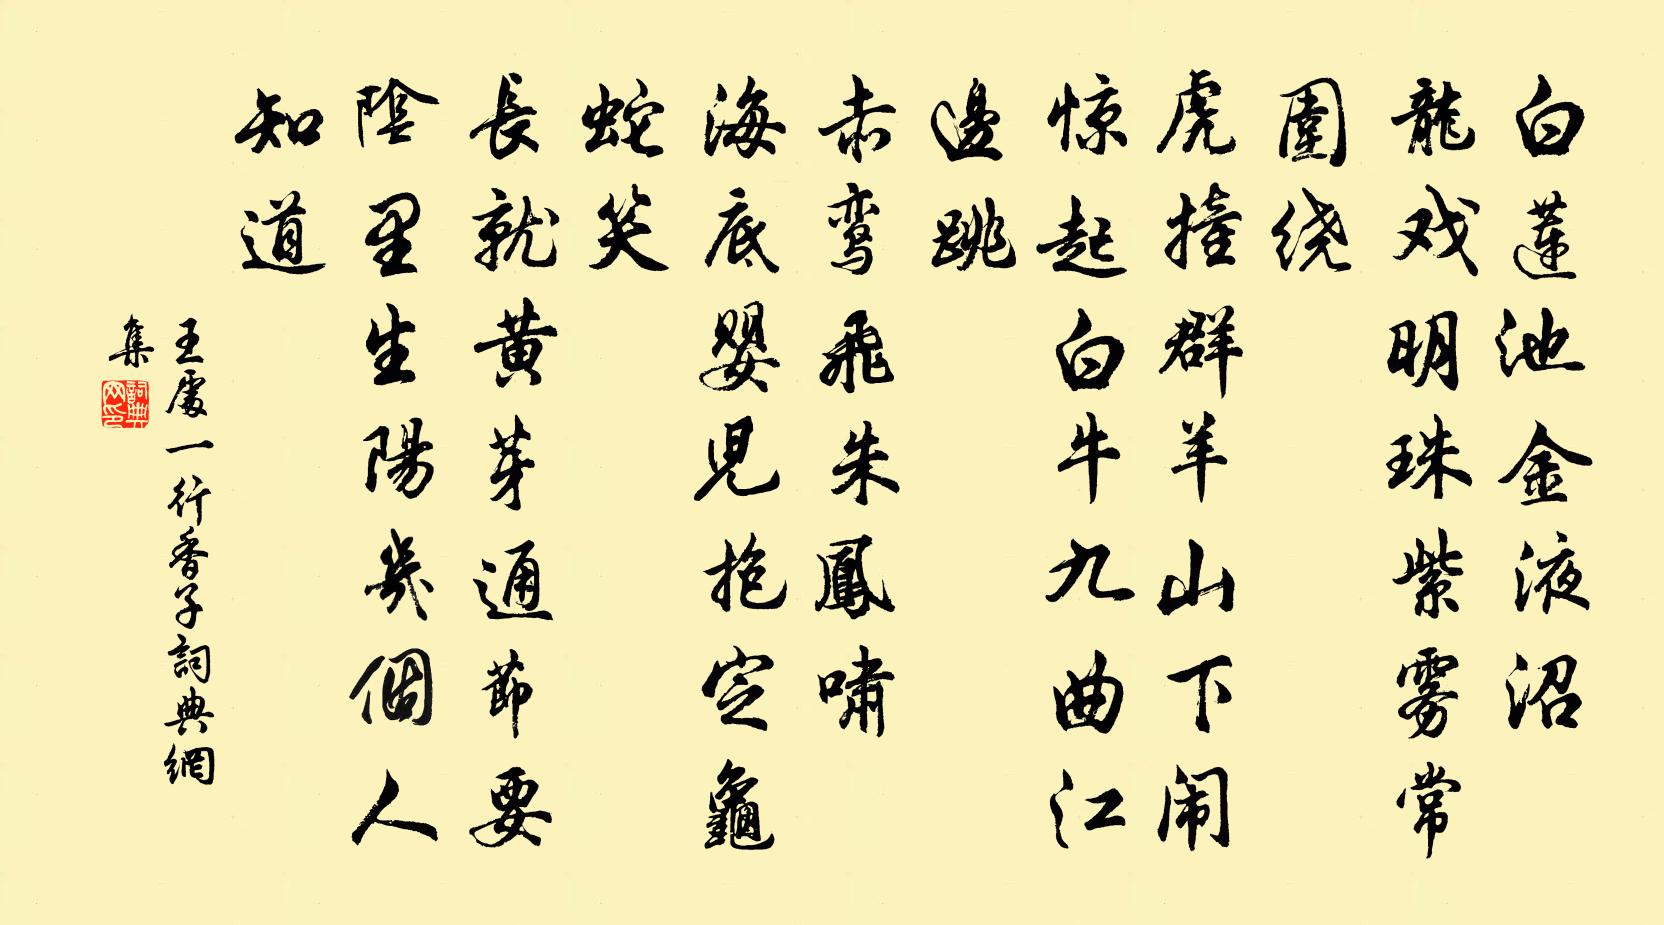 白蓮池金液沼
龍戏明珠紫雾常
圍绕
虎撞群羊山下闹
惊起白牛九曲江
邊跳
赤鸾飛朱鳳嘯
海底嬰児抱定龜
蛇笑
長就黄芽通節要
陰里生陽幾個人
知道
王處一行香子詞典網
集
詞典
网印